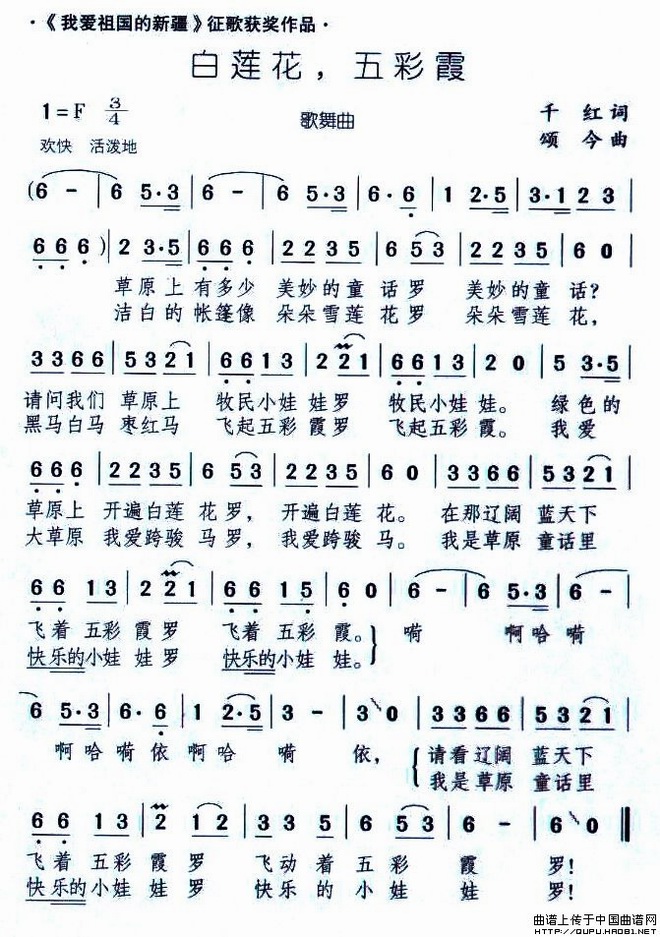 ·《我爱祖国的新疆》征歌获奖作品·
白莲花，五彩霞
1=F 3/4
歌舞曲
千 红 词
欢快 活泼地
颂 今 曲
(6 - | 6 5·3 | 6 - | 6 5·3 | 6·6 | 1 2·5 | 3·1 2 3 |
6 6 6 ) | 2 3·5 | 6 6 6 | 2 2 3 5 | 6 5 3 | 2 2 3 5 | 6 0 |
草原上 有多少 美妙的童 话罗 美妙的童 话?
洁白的 帐篷像 朵朵雪莲 花罗 朵朵雪莲 花，
3 3 6 6 | 5 3 2 1 | 6 6 1 3 | 2 2 1 | 6 6 1 3 | 2 0 | 5 3·5 |
请问我们 草原上 牧民小娃 娃罗 牧民小娃 娃。 绿色的
黑马白马 枣红马 飞起五彩 霞罗 飞起五彩 霞。 我爱
6 6 6 | 2 2 3 5 | 6 5 3 | 2 2 3 5 | 6 0 | 3 3 6 6 | 5 3 2 1 |
草原上 开遍白莲 花罗， 开遍白莲 花。 在那辽阔 蓝天下
大草原 我爱跨骏 马罗， 我爱跨骏 马。 我是草原 童话里
6 6 1 3 | 2 2 1 | 6 6 1 5 | 6 0 | 6 - | 6 5·3 | 6 - |
飞着 五彩 霞罗 飞着 五彩 霞。 嗬 啊哈嗬
快乐的小娃 娃罗 快乐的小娃 娃。
6 5·3 | 6·6 | 1 2·5 | 3 - | 3 0 | 3 3 6 6 | 5 3 2 1 |
啊哈嗬依啊哈 嗬 依， 请看辽阔 蓝天下
我是草原 童话里
6 6 1 3 | 2 1 2 | 3 3 5 | 6 5 3 | 6 - | 6 0 ‖
飞着 五彩 霞 罗 飞动 着 五彩 霞 罗!
快乐的小娃 娃 罗 快乐 的 小娃 娃 罗!
曲谱上传于中国曲谱网
HTTP://QUPU.HAO81.NET